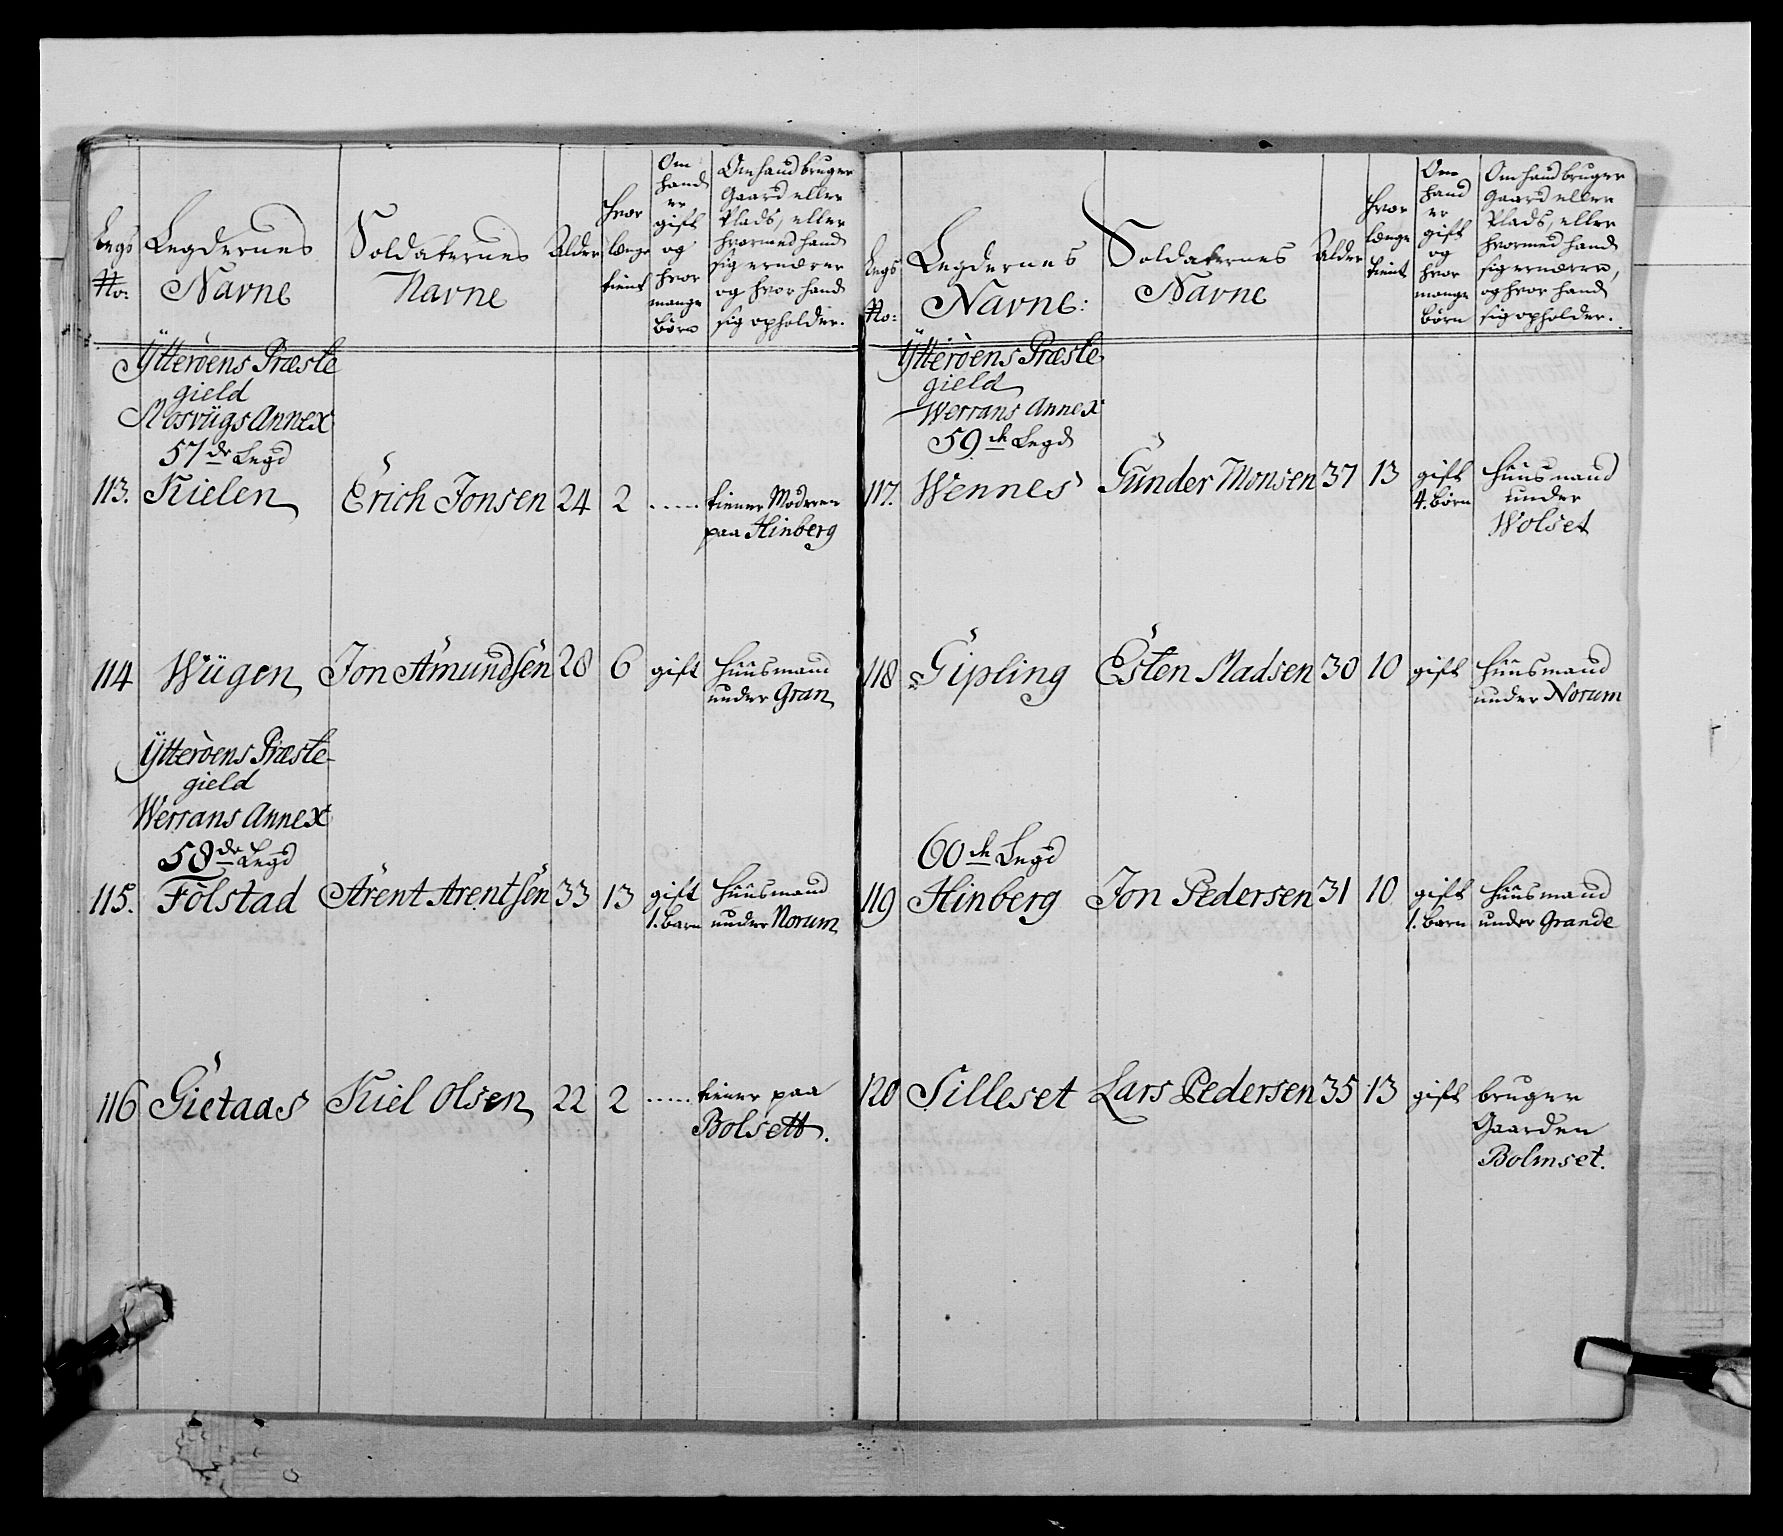 Legs
No:
Legdernes
Navne
Soldaternes
Navne
Alder
hvor
længe
tient
Om
hand
er
gift
og
hvor
mange
børn
Om hand bruger
Gaard eller
Plads, eller
hvormed hand
sig ernærer
og hvor hand
sig opholder.
Ÿtterøens Præste
gield
Mosviigs Annex
57de Legd
113. Kielen Erich Jonsen 24 2 ..... tiener Moderen
paa Hinberg
114 Wügen Jon Amundsen 28 6 gift Huusmand
under Gran
Ÿtterøens Præste-
gield
Werrans Annex
58de Legd
115. Fölstad Arent Arentsen 33 13 gift Huusmand
1. barn under Norum
116 Gietaas Kiel Olsen 22 2 ..... tiener paa
Bolsett.
Legs
No:
Legdernes
Navne:
Soldaternes
Navne
Alder
hvor
længe
tient
Om
hand
er
gift
og
hvor
mange
børn
Om hand bruger
Gaard eller
Plads, eller
hvormed hand
sig ernærer,
og hvor hand
sig opholder.
Ÿtterøens Præste
gield
Werrans Annex
59de Legd
117. Wennes Gunder Monsen 37 13 gift Huusmand
4. børn under
Wolset
118 Gipling Esten Madsen 30 10 gift Huusmand
under Norum
60de Legd
119 Hinberg Jon Pedersen 31 10 gift Huusmand
1. barn under Grande
120 Silleset Lars Pedersen 35 13 gift bruger
Gaarden
Bolmset.